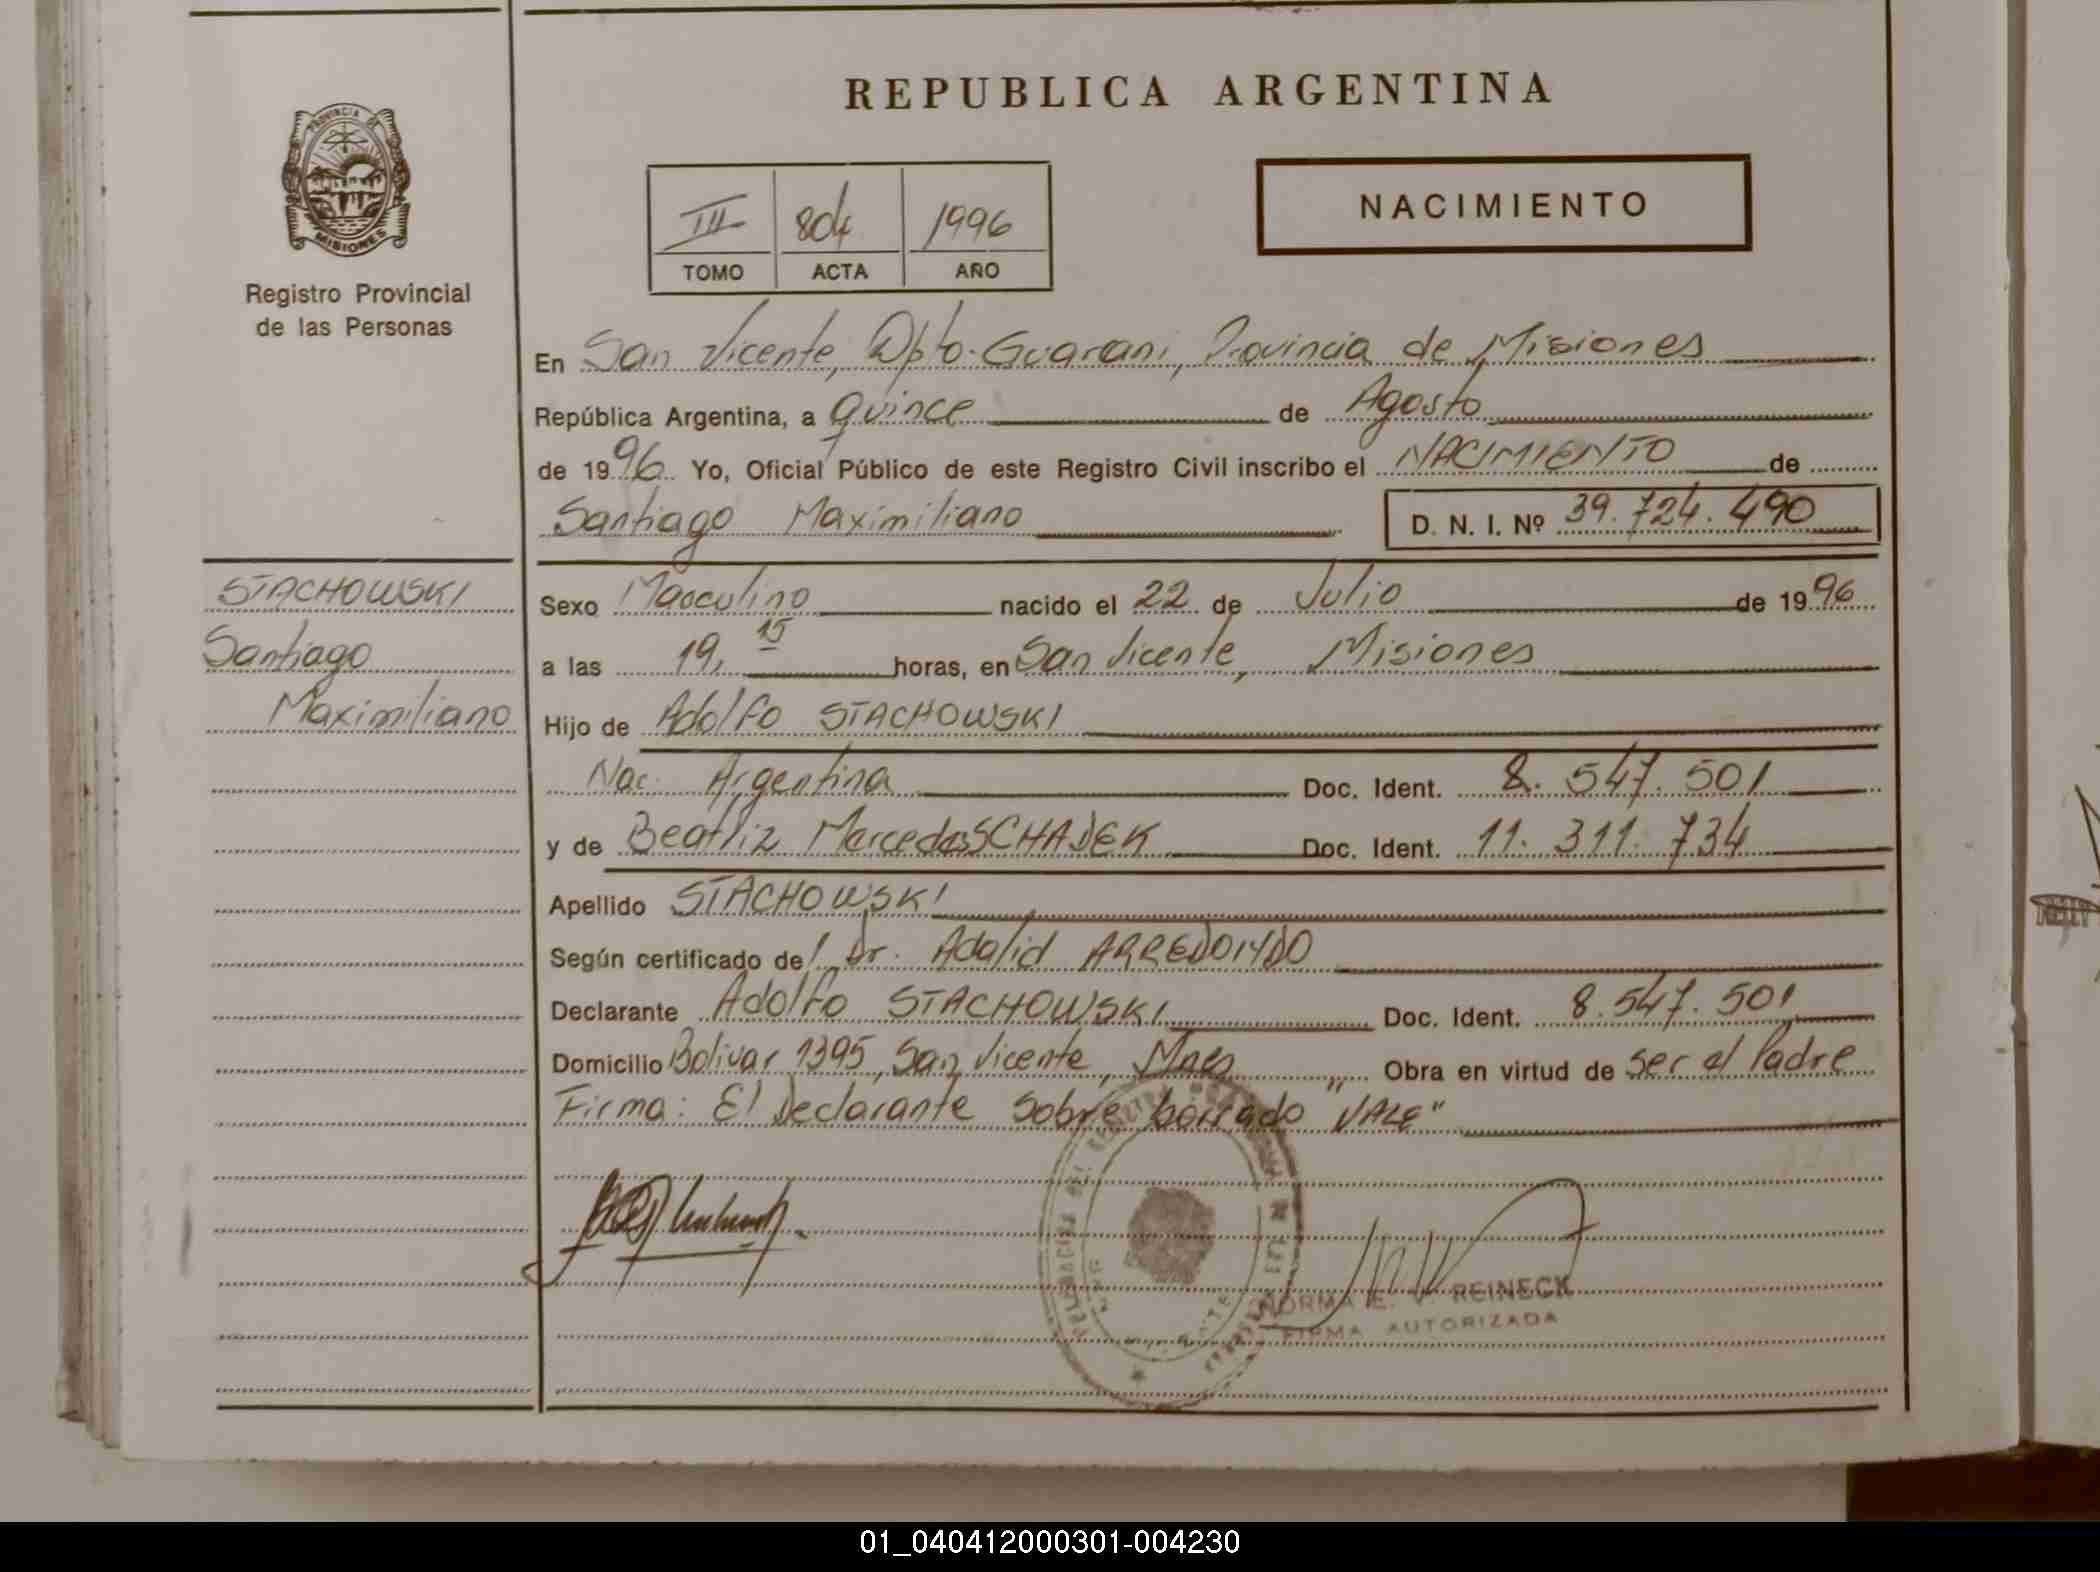 REPUBLICA ARGENTINA
PROVINCIA DE
MISIONES
Registro Provincial
de las Personas
III 804 1996
TOMO ACTA AÑO
NACIMIENTO
En San Vicente, Dpto. Guarani, Provincia de Misiones
República Argentina, a quince de Agosto
de 1996 Yo, Oficial Público de este Registro Civil inscribo el NACIMIENTO de
Santiago Maximiliano D. N. I. Nº 39.724.490
STACHOWSKI
Santiago
Maximiliano
Sexo Masculino nacido el 22 de Julio de 1996
a las 19,15 horas, en San Vicente, Misiones
Hijo de Adolfo STACHOWSKI
Nac. Argentina Doc. Ident. 8.547.501
y de Beatriz Mercedes SCHADEK Doc. Ident. 11.311.734
Apellido STACHOWSKI
Según certificado de/ Dr. Adalid ARREDONDO
Declarante Adolfo STACHOWSKI Doc. Ident. 8.547.501
Domicilio Bolivar 1395, San Vicente, Mnes Obra en virtud de ser el Padre
Firma: El Declarante sobre borrado "VALE"
NORMA E. V. REINECK
FIRMA AUTORIZADA
01_040412000301-004230